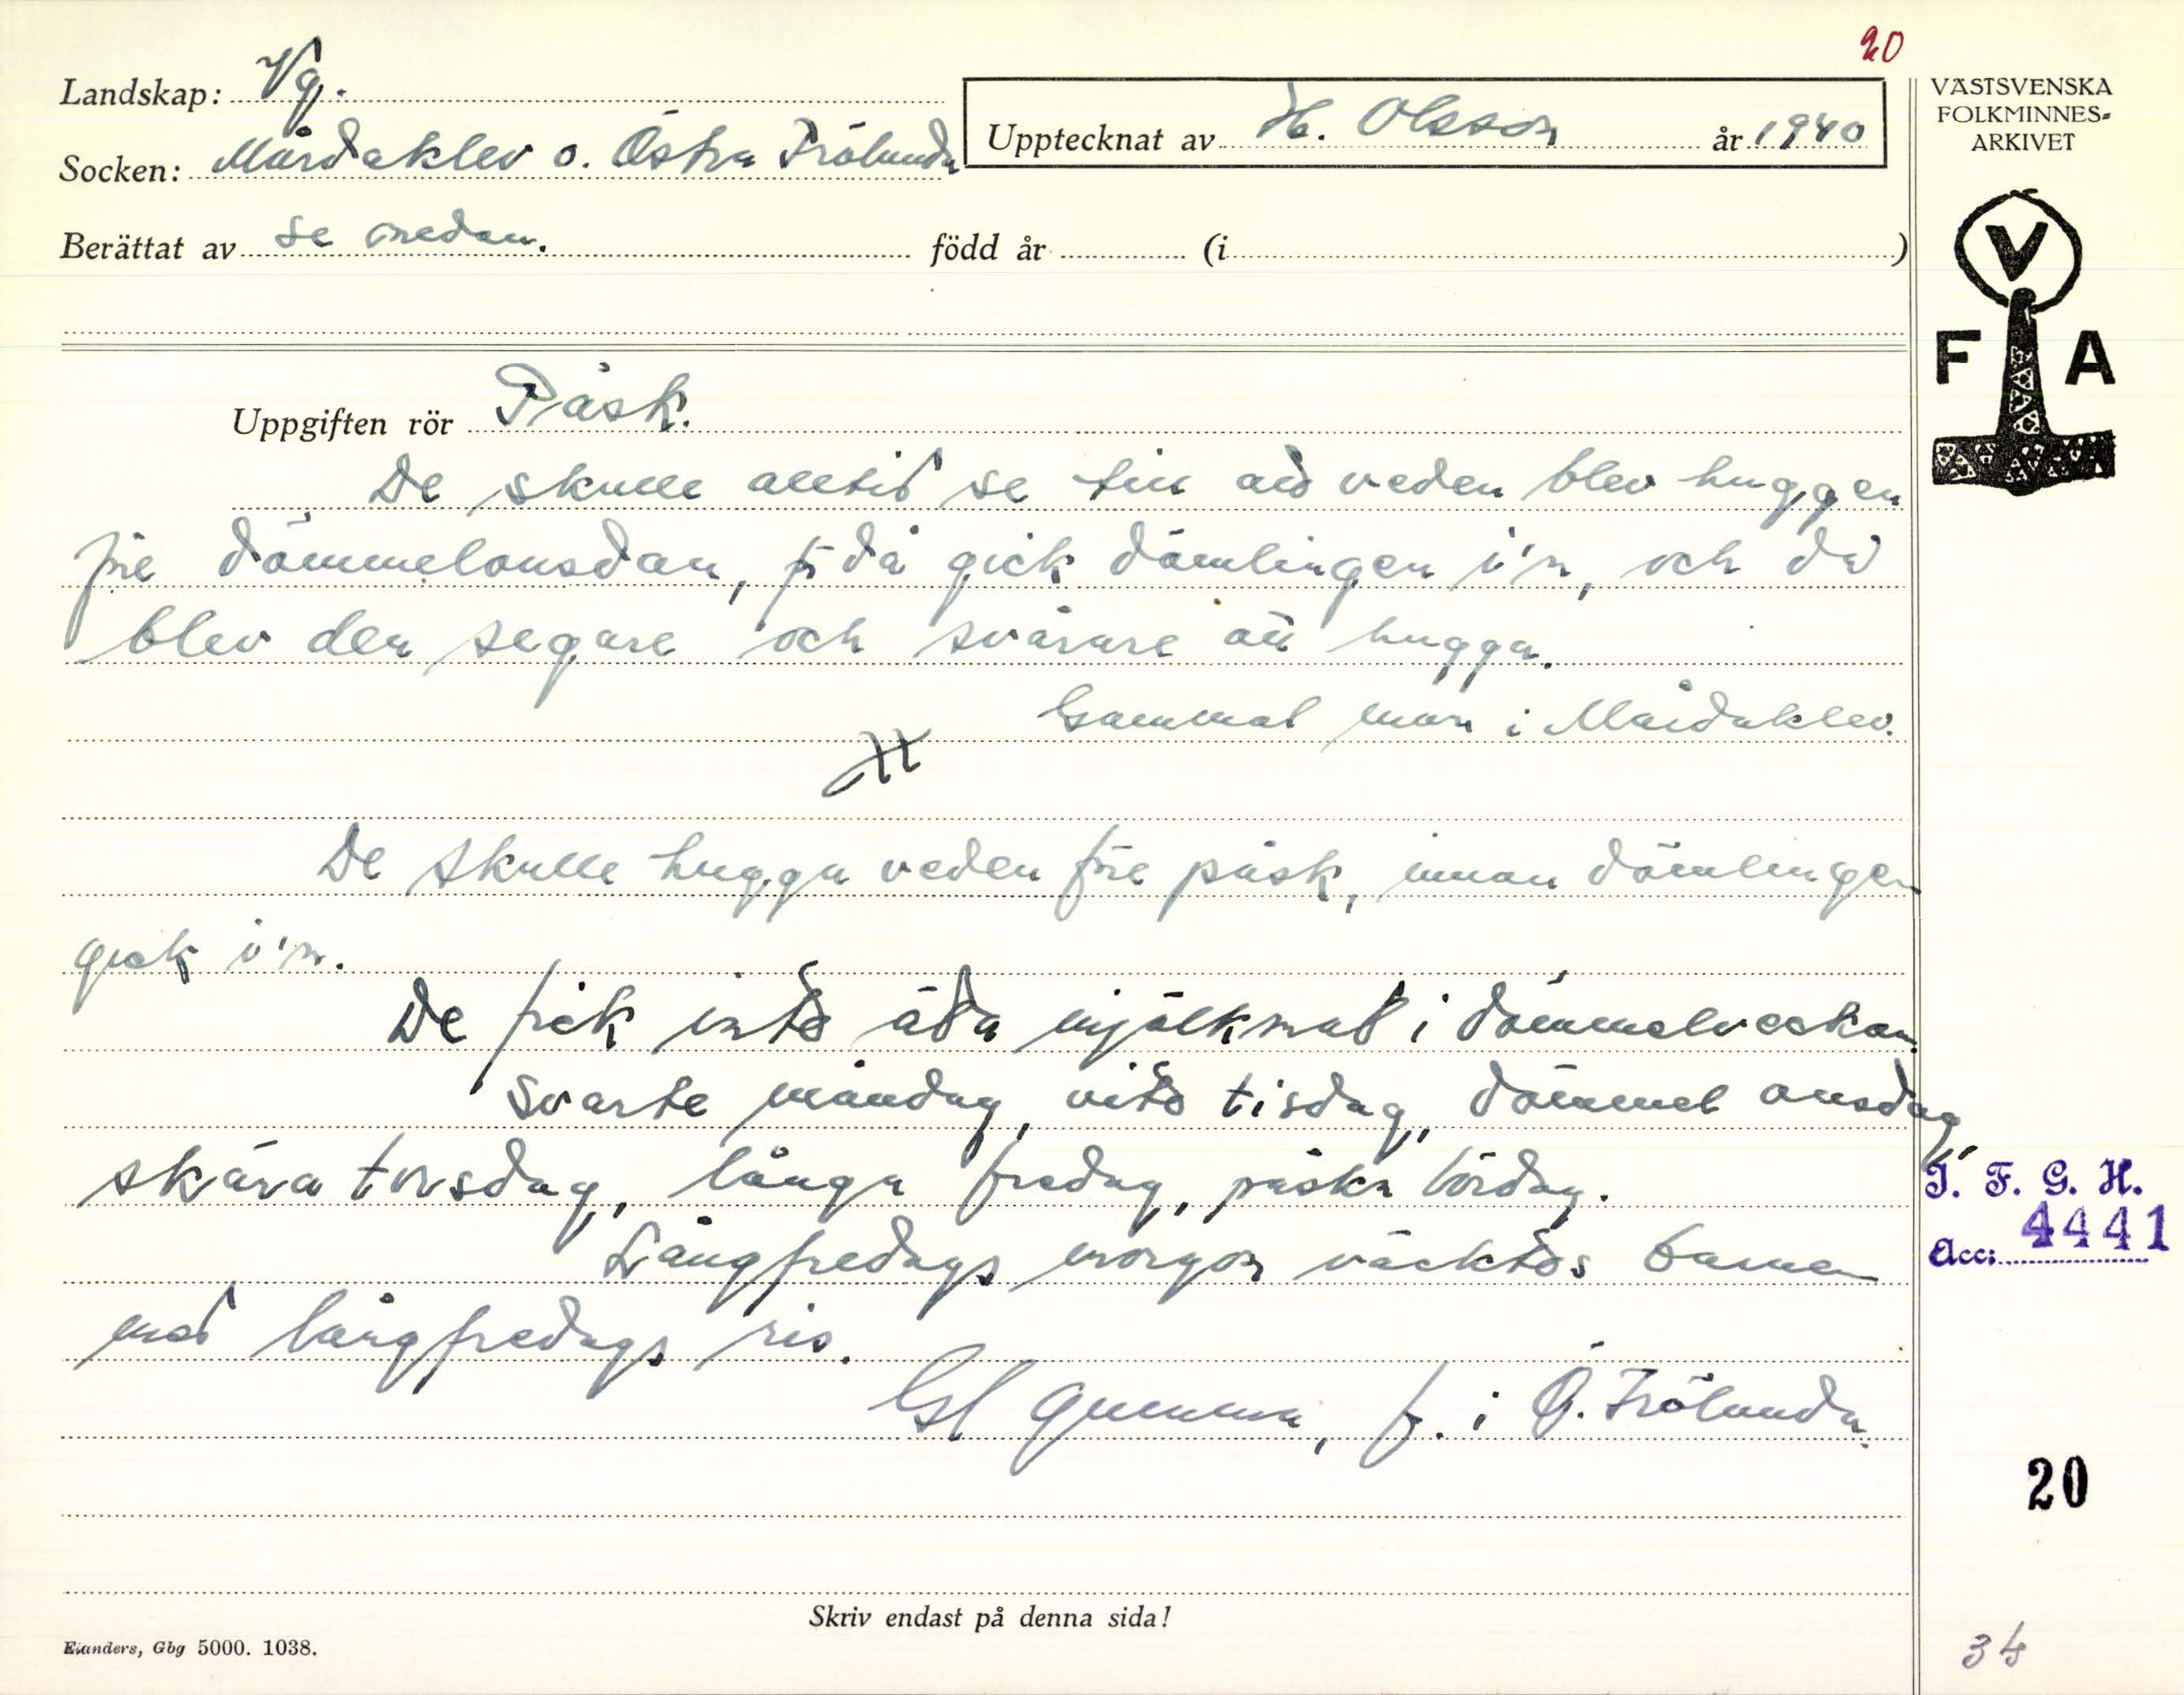 20
Landskap: Vg.
Socken: Mårdaklev o. Östra Frölunda
Upptecknat av H. Olsson år 1940
Berättat av se nedan. född år (i )
VÄSTSVENSKA
FOLKMINNES-
ARKIVET
V
F A
Uppgiften rör Påsk.
De skulle alltid se till att veden blev huggen
före dömmelonsdan, för då gick dömlingen i'n, och då
blev den segare och svårare att hugga.
Gammal man i Mårdaklev.
De skulle hugga veden före påsk, innan dömlingen
gick i'n.
De fick inte äta mjölkmat i dömmelveckan.
Svarte måndag, vite tisdag, dömmel onsdag,
skära torsdag, långa fredag, påska lördag.
Långfredags morgon väcktes barnen
med långfredags ris.
Gl gumma, f. i Ö. Frölunda.
I. F. G. H.
Acc: 4441
20
Skriv endast på denna sida!
Elanders, Gbg 5000. 1038.
34